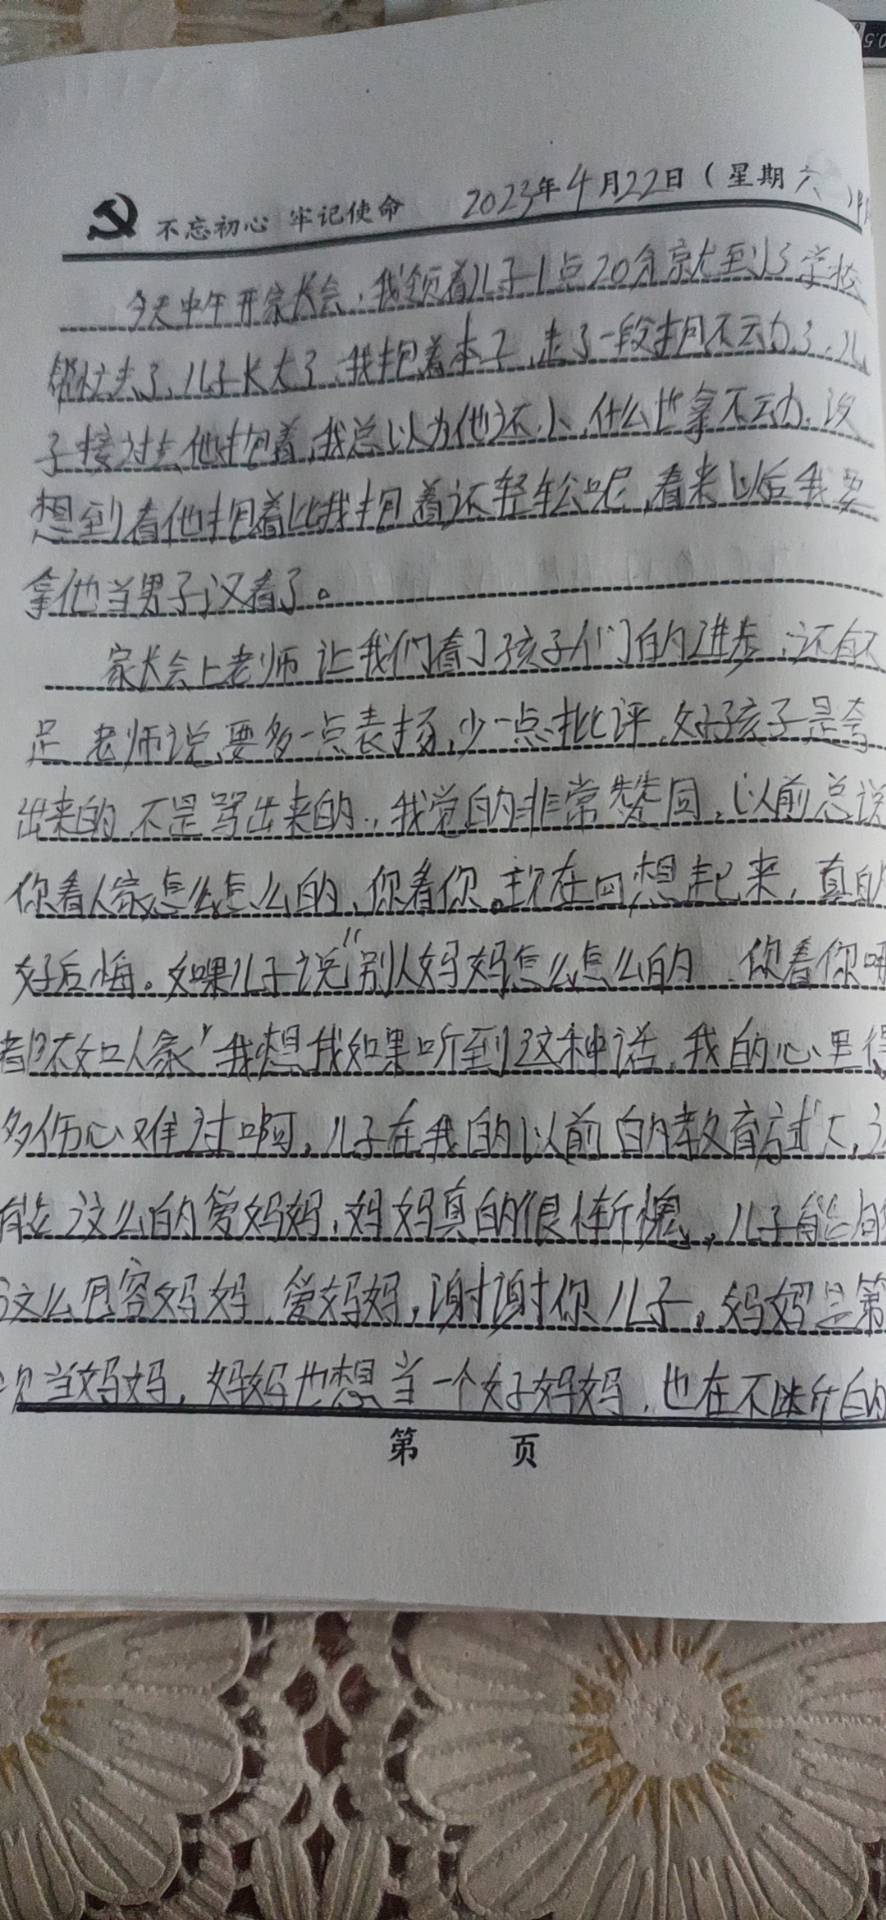 不忘初心 牢记使命 2023年4月22日（星期六）
今天中午开家长会，我领着儿子1点20分就到了学校
帮忙去了，儿子长大了，我抱着本子，走了一段抱不动了，儿
子接过去他抱着，我总以为他还小，什么也拿不动，没
想到看他抱着比我抱着还轻松呢，看来以后我要
拿他当男子汉看了。
家长会上老师让我们看了孩子们的进步，还有不
足 老师说，要多一点表扬，少一点批评，好孩子是夸
出来的 不是骂出来的，我觉的非常赞同，以前总说
你看人家怎么怎么的，你看你。现在回想起来，真的
好后悔。如果儿子说“别人妈妈怎么怎么的，你看你
都不如人家”我想我如果听到这种话，我的心里得
多伤心难过啊，儿子在我的以前的教育方式下，
能这么的爱妈妈，妈妈真的很惭愧，儿子能
这么包容妈妈，爱妈妈，谢谢你儿子，妈妈是第
次当妈妈，妈妈也想当一个好妈妈，也在不断的
第 页